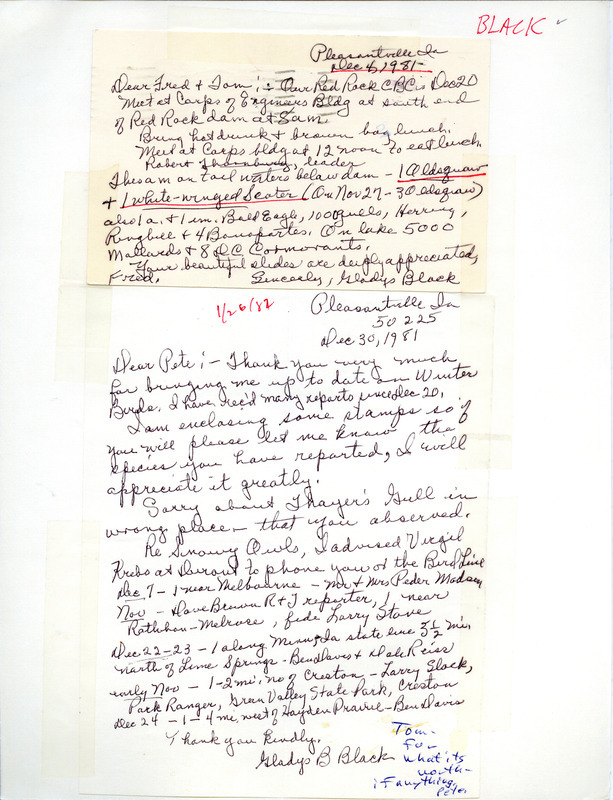 BLACK
Pleasantville Ia
Dec 4, 1981
Dear Fred & Tom; :- Our Red Rock CBC is Dec 20
Meet at Corps of Engineers Bldg at south end
of Red Rock dam at 8am.
Bring hot drink & brown bag lunch.
Meet at Corps bldg at 12 noon to eat lunch.
Robert Thornburg, leader
This am on tail waters below dam - 1 Oldsquaw
& 1 white-winged Scoter (On Nov 27 - 3 Oldsquaw)
also 1 a. & 1 im. Bald Eagle, 1000 gulls, Herring,
Ringbill & 4 Bonapartes. On lake 5000
Mallards & 8 DC Cormorants.
Your beautiful slides are deeply appreciated,
Fred. Sincerely, Gladys Black
1/26/82
Pleasantville Ia
50225
Dec 30, 1981
Dear Pete; - Thank you very much
for bringing me up to date on Winter
Birds. I have rec'd many reports since Dec 20.
I am enclosing some stamps so if
you will please let me know the
species you have reported, I will
appreciate it greatly.
Sorry about Thayer's Gull in
wrong place - that you observed.
Re Snowy Owls, I advised Virgil
Krebs at Durant to phone you or the Bird Line
Dec 7 - 1 near Melbourne - Mr & Mrs Peder Madsen
Nov - Dave Brown R & T reporter, 1 near
Rathbun - Melrose, fide Larry Stone
Dec 22-23 - 1 along Minn, Ia state line 3½ mi.
north of Lime Springs - Ben Daves & Dale Reiss
early Nov - 1-2 mi. no of Creston - Larry Slack,
Park Ranger, Green Valley State Park, Creston
Dec 24 - 1 - 4 mi, west of Hayden Prairie - Ben Davis
Thank you kindly.
Gladys B Black
Tom-
for
what its
worth-
if anything.
Peter